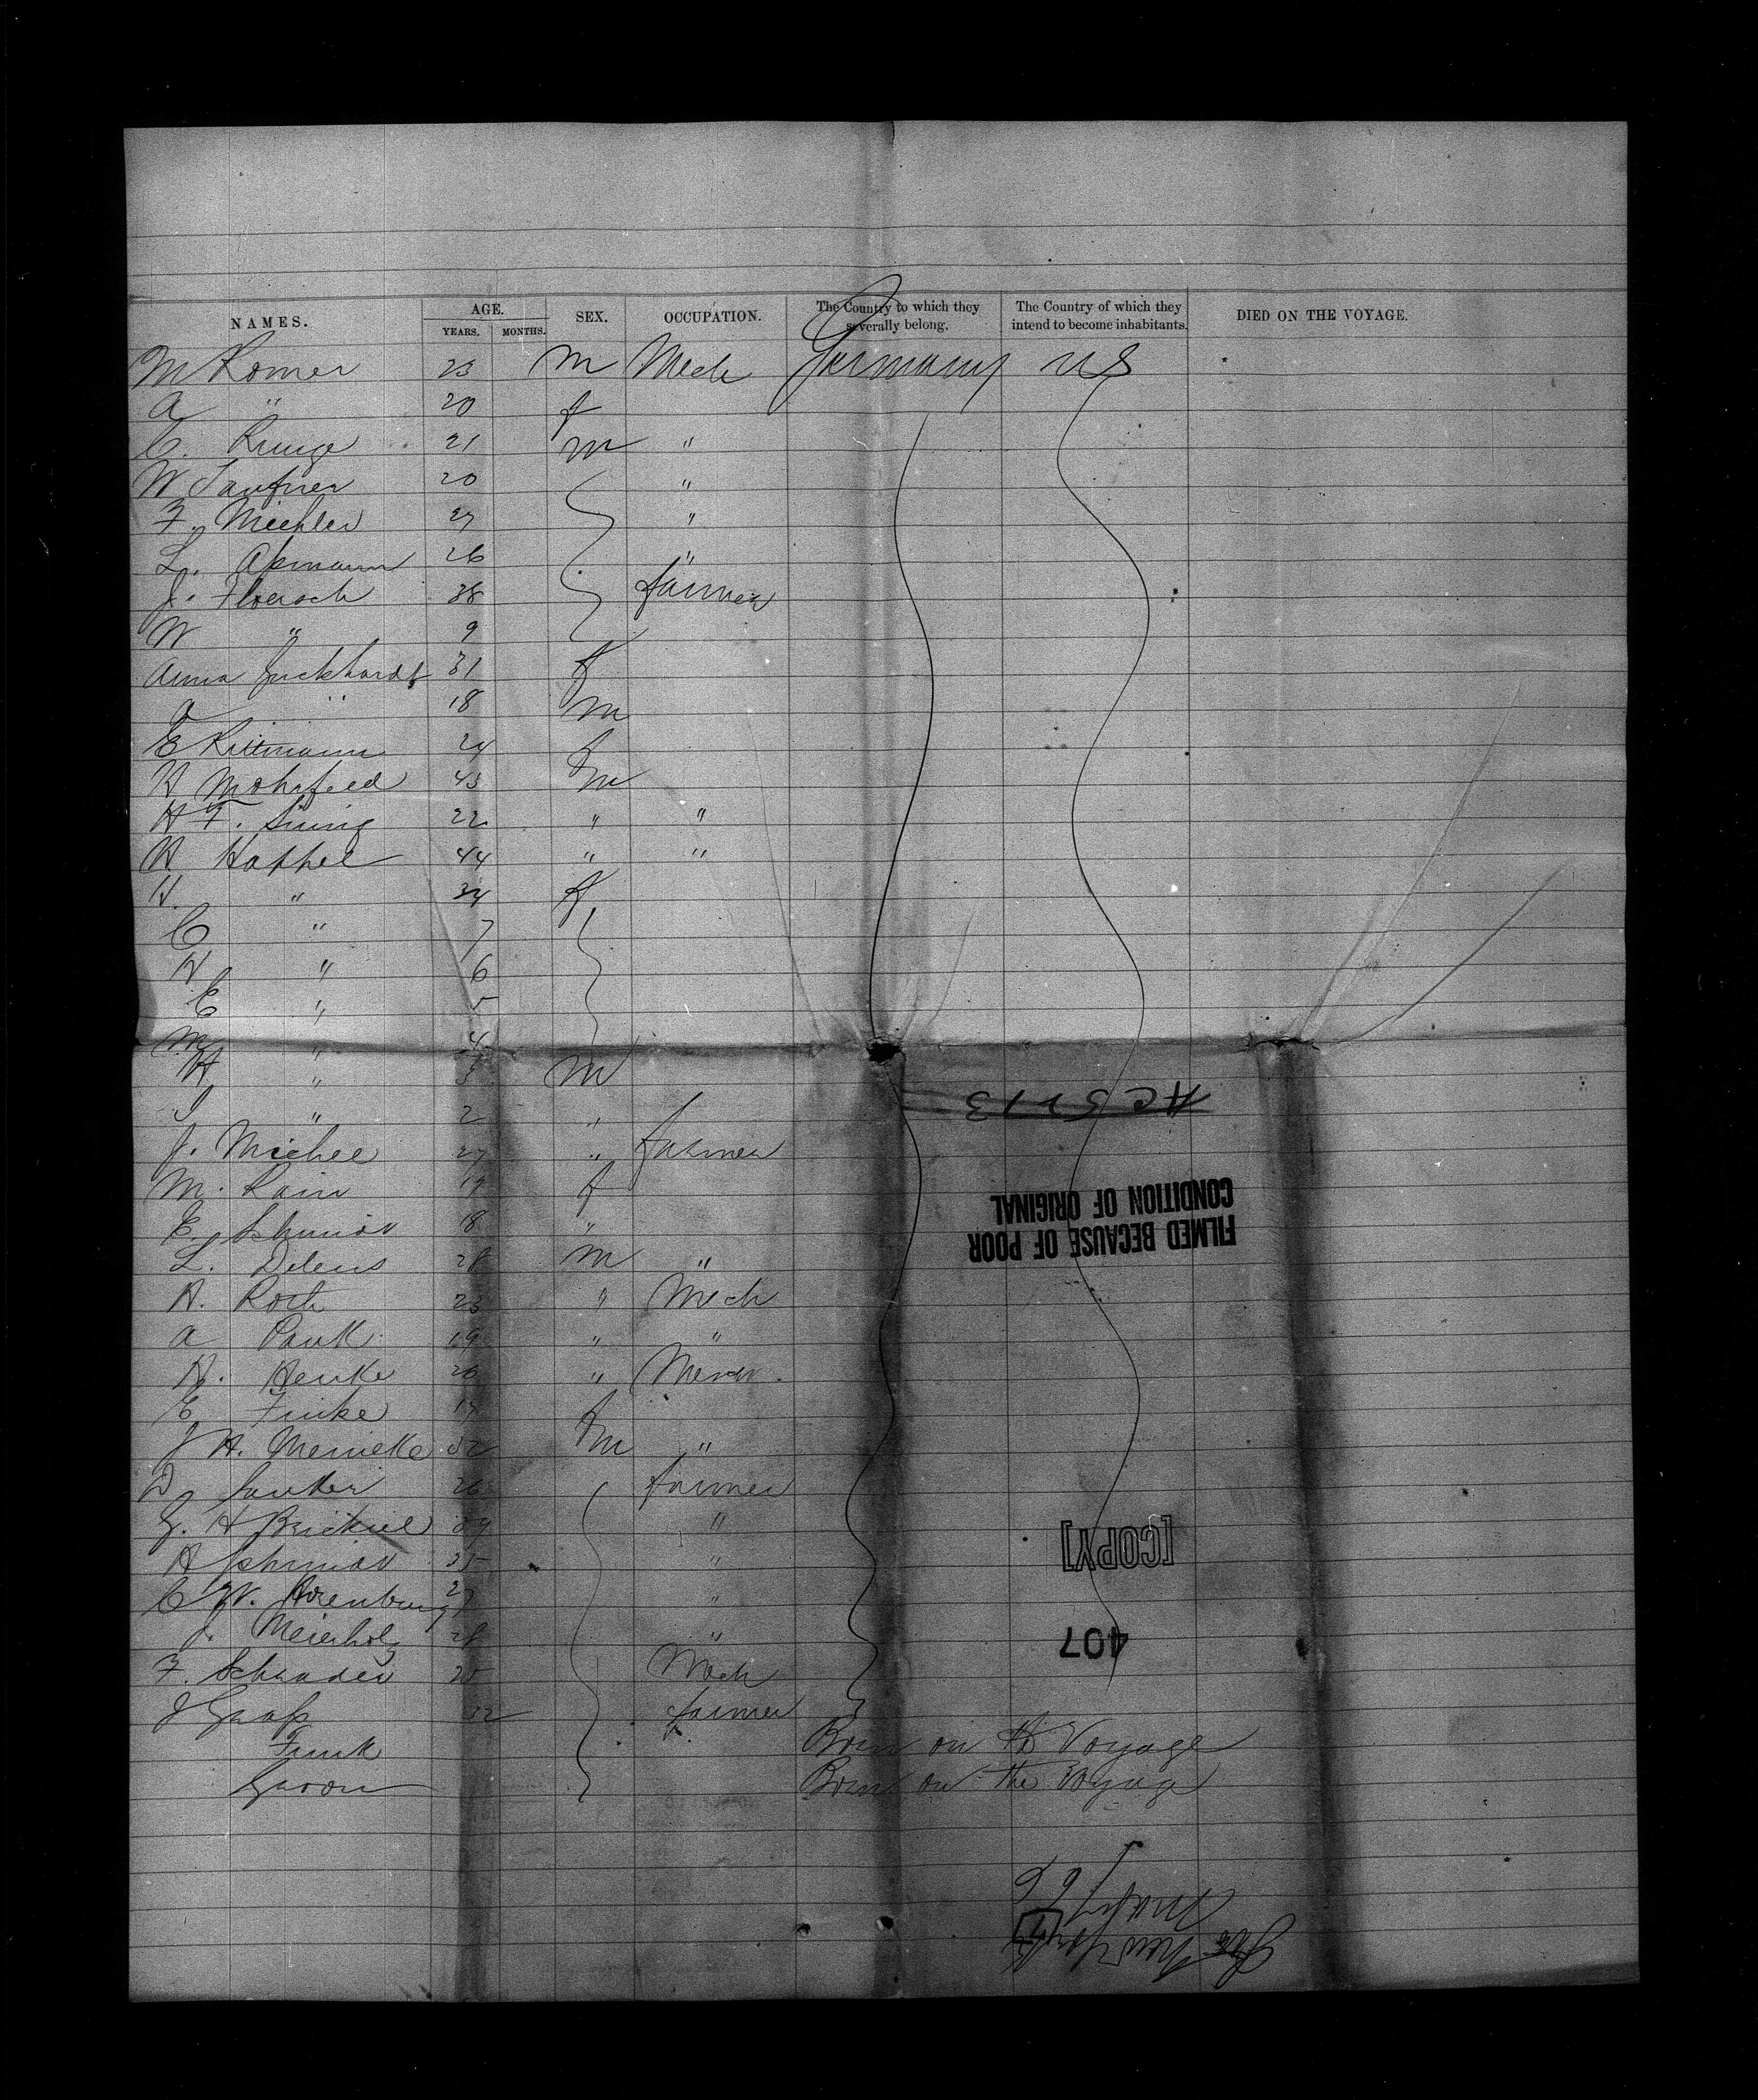 NAMES. AGE. YEARS. MONTHS. SEX. OCCUPATION. The Country to which they severally belong. The Country of which they intend to become inhabitants. DIED ON THE VOYAGE.
M Romer 23 M Mech Germany US
A " 20 f
C. Runge 21 m "
W 20 "
F. Miehler 27 "
L. Assmann 26 "
J. Floersch 38 farmer
W " 9
Anna Juckhardt 31 f
" 18 m
E Rittmann 24 f
H Mohrfeed 43 m
H F. Suing 22 " "
H Happel 44 " "
H. " 34 f
C " 7
H " 6
C " 5
M " 4
H " 3 M
J " 2 "
J. Michel 27 " farmer
M. Rain 19 f
E. Schmidt 18 "
L. Delens 28 M "
H. Roth 23 " Mech
A Pauk 19 " "
H. Henke 26 " Merch.
E Finke 19 f
J H. Meineke 32 m "
D Junker 26 farmer
G. H 39 "
A Schmidt 35 "
C W. 27 "
J. Meierholz 28 "
F. Schrader 25 Mech
J Graß 32 farmer
Funk Born on the Voyage
Garon Born on the Voyage
AC 5713
FILMED BECAUSE OF POOR
CONDITION OF ORIGINAL
[COPY]
407
New York